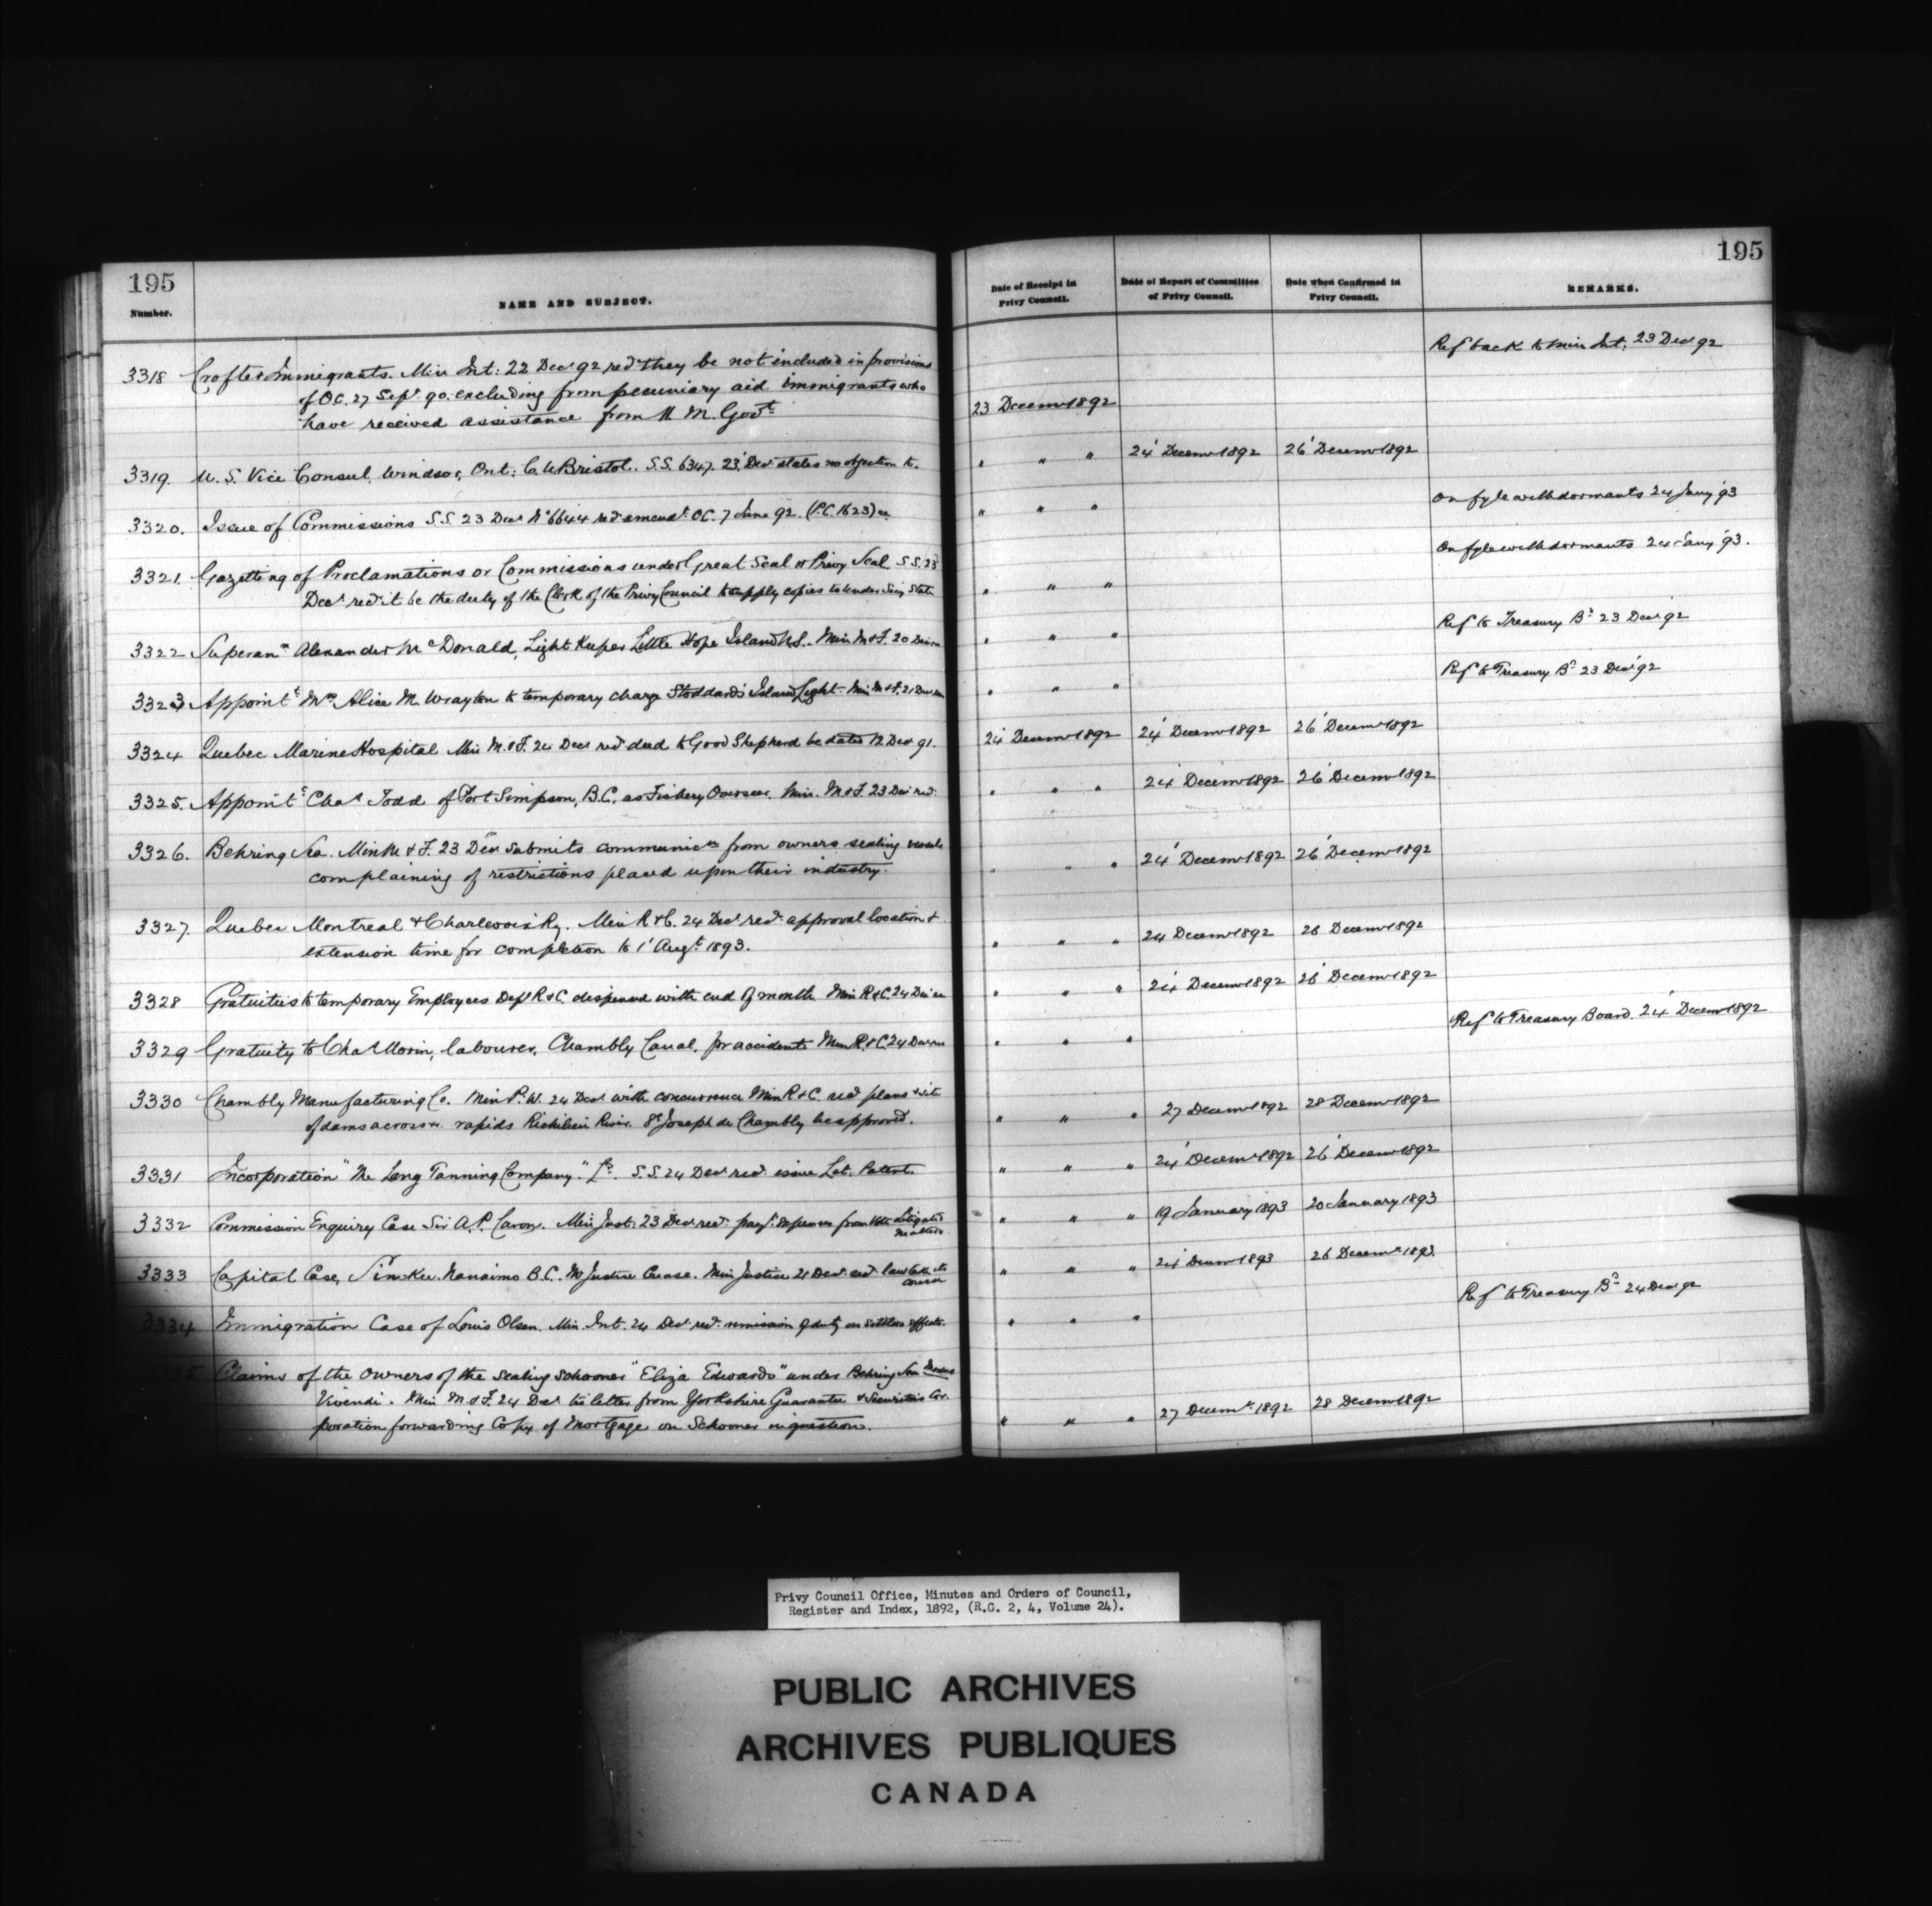 195
195
Number.
NAME AND SUBJECT.
Date of Receipt in Privy Council.
Date of Report of Committee of Privy Council.
Date when Confirmed in Privy Council.
REMARKS.
Ref back to Min Int: 23 Decr 92
3318 Crofter Immigrants. Min Int: 22 Decr 92 recd they be not included in provisions
of O.C. 27 Sept 90. excluding from pecuniary aid immigrants who
have received assistance from H. M. Govt 23 Decemr 1892
3319. U. S. Vice Consul, Windsor, Ont: C. W Bristol. S.S. 6347. 23 Decr states no objection to. " " " 24 Decemr 1892 26 Decemr 1892
3320. Issue of Commissions S.S. 23 Decr No 6644 recd amendt O.C. 7 June 92. (P.C. 1623) " " " On fyle with dormants 24 Jany '93
3321. Gazetting of Proclamations or Commissions under Great Seal or Privy Seal S.S. 23 On fyle with dormants 24 Jany '93.
Decr recd it be the duty of the Clerk of the Privy Council to supply copies to Under Secy State " " "
3322 Superann Alexander McDonald, Light Keeper Little Hope Island N.S. Min M & F. 20 Decr " " " Ref to Treasury Bd 23 Decr 92
3323 Appointt Mrs Alice M. Wrayton to temporary charge Stoddard's Island Light. Min M & F. 21 Decr " " " Ref to Treasury Bd 23 Decr 92
3324 Quebec Marine Hospital Min M. & F. 24 Decr recd deed to Good Shepherd be dated 12 Decr 91. 24 Decemr 1892 24 Decemr 1892 26 Decemr 1892
3325. Appointt Chas Todd of Port Simpson, B.C. as Fishery Overseer. Min. M & F. 23 Decr recd " " " 24 Decemr 1892 26 Decemr 1892
3326. Behring Sea. Min M & F. 23 Decr submits communicns from owners sealing vessels
complaining of restrictions placed upon their industry. " " " 24 Decemr 1892 26 Decemr 1892
3327. Quebec Montreal & Charlevoix Ry. Min R & C. 24 Decr recd approval location &
extension time for completion to 1 Augt 1893. " " " 24 Decemr 1892 28 Decemr 1892
3328 Gratuities to temporary Employees Dept R & C. dispensed with end of month Min R & C. 24 Decr " " " 24 Decemr 1892 26 Decemr 1892
3329 Gratuity to Chas Morin, labourer, Chambly Canal, for accident Min R. & C. 24 Decr " " " Ref to Treasury Board. 24 Decemr 1892
3330 Chambly Manufacturing Co. Min P. W. 24 Decr with concurrence Min R & C. recd plans & site
of dams across rapids Richelieu River St Joseph de Chambly be approved. " " " 27 Decemr 1892 28 Decemr 1892
3331 Incorporation "The Lang Tanning Company." Ld. S.S. 24 Decr recd issue Let. Patent. " " " 24 Decemr 1892 26 Decemr 1892
3332 Commission Enquiry Case Sir A. P. Caron. Min Just: 23 Decr recd payt expenses from Vote Litigated Matters " " " 19 January 1893 20 January 1893
3333 Capital Case, Sin Kee. Nanaimo B.C. Mr Justice Crease. Min Justice 21 Decr recd law take its course " " " 24 Decemr 1893 26 Decemr 1893.
3334 Immigration Case of Louis Olsen. Min. Int. 24 Decr recd remission of duty on settlers effects. " " " Ref to Treasury Bd 24 Decr 92
Claims of the owners of the sealing schooner "Eliza Edwards" under Behring Sea Modus
Vivendi. Min M. & F. 24 Decr letter from Yorkshire Guarantee & Securities Cor-
poration forwarding Copy of Mortgage on Schooner in question. " " " 27 Decemr 1892 28 Decemr 1892
Privy Council Office, Minutes and Orders of Council,
Register and Index, 1892, (R.G. 2, 4, Volume 24).
PUBLIC ARCHIVES
ARCHIVES PUBLIQUES
CANADA